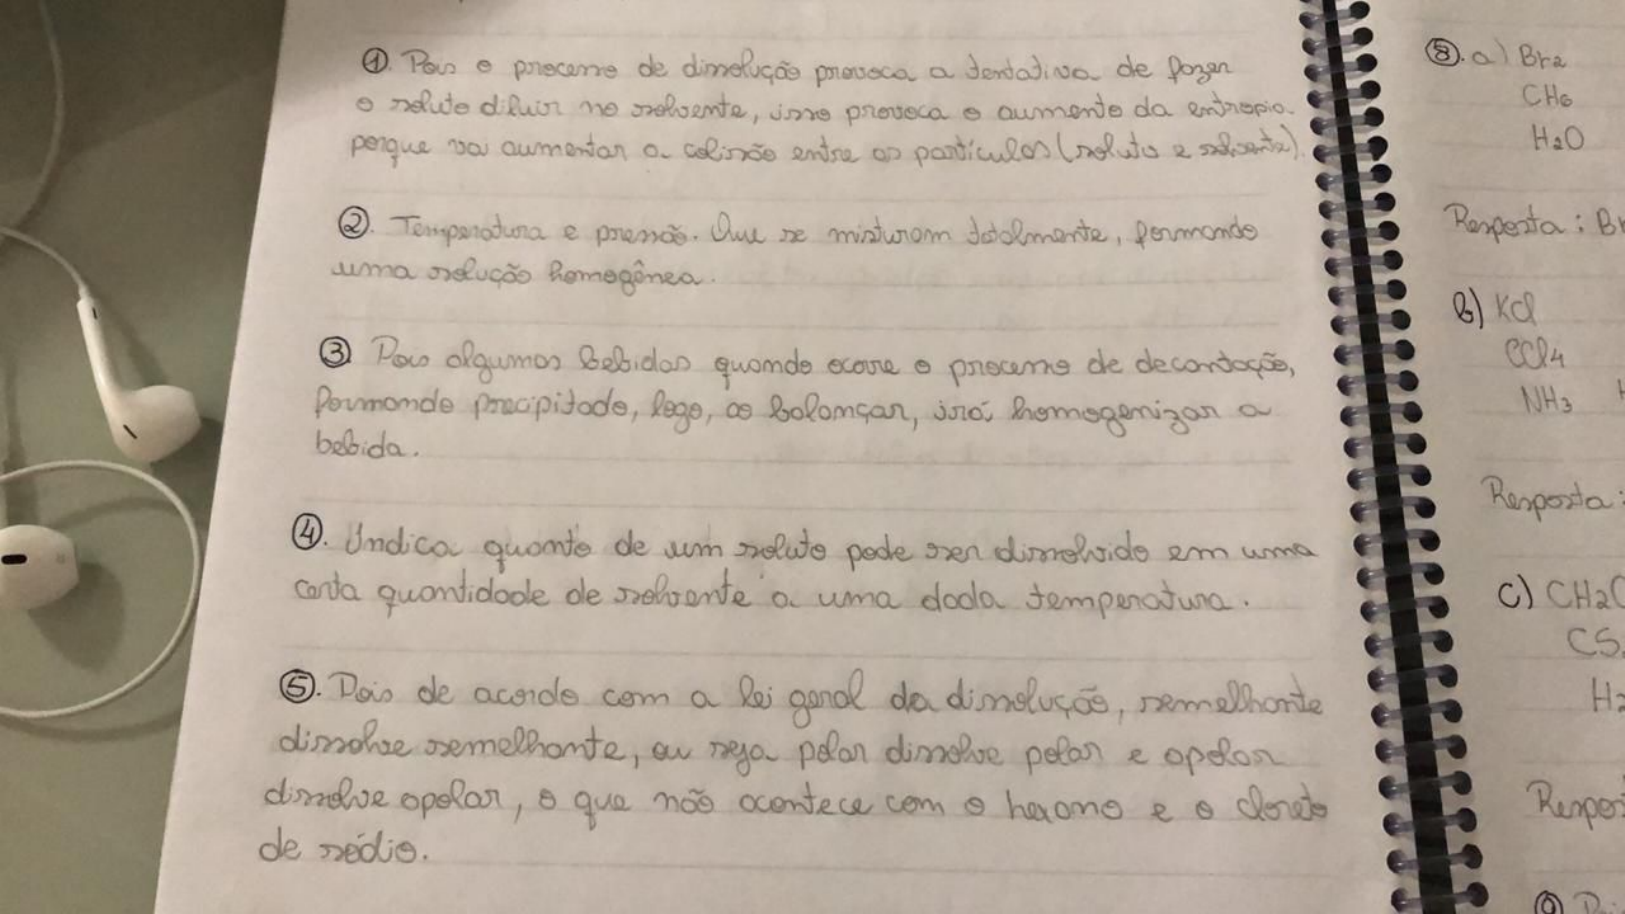 ①. Pois o processo de dissolução provoca a tentativa de fazer
o soluto diluir no solvente, isso provoca o aumento da entropia.
porque vai aumentar a colisão entre as partículas (soluto e solvente).
②. Temperatura e pressão. Que se misturam totalmente, formando
uma solução homogênea.
③ Pois algumas bebidas quando ocorre o processo de decantação,
formando precipitado, logo, ao balançar, irá homogenizar a
bebida.
④. Indica quanto de um soluto pode ser dissolvido em uma
certa quantidade de solvente a uma dada temperatura.
⑤. Pois de acordo com a lei geral da dissolução, semelhante
dissolve semelhante, ou seja polar dissolve polar e apolar
dissolve apolar, o que não acontece com o hexano e o cloreto
de sódio.
⑧. a) Br2
CH6
H2O
Resposta: Br
b) KCl
CCl4
NH3
Resposta:
c) CH2O
CS
H2
Respos
⑨